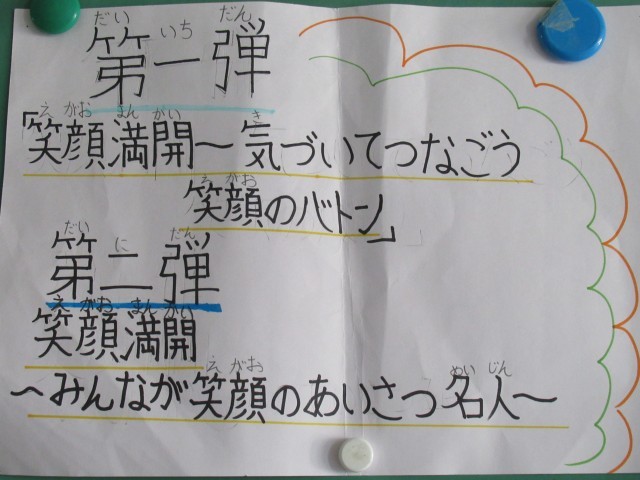 だい いち だん
第一弾
え がお まん かい き
「笑顔満開～気づいてつなごう
え がお
笑顔のバトン」
だい に だん
第二弾
え がお まん かい
笑顔満開
え がお めい じん
～みんなが笑顔のあいさつ名人～